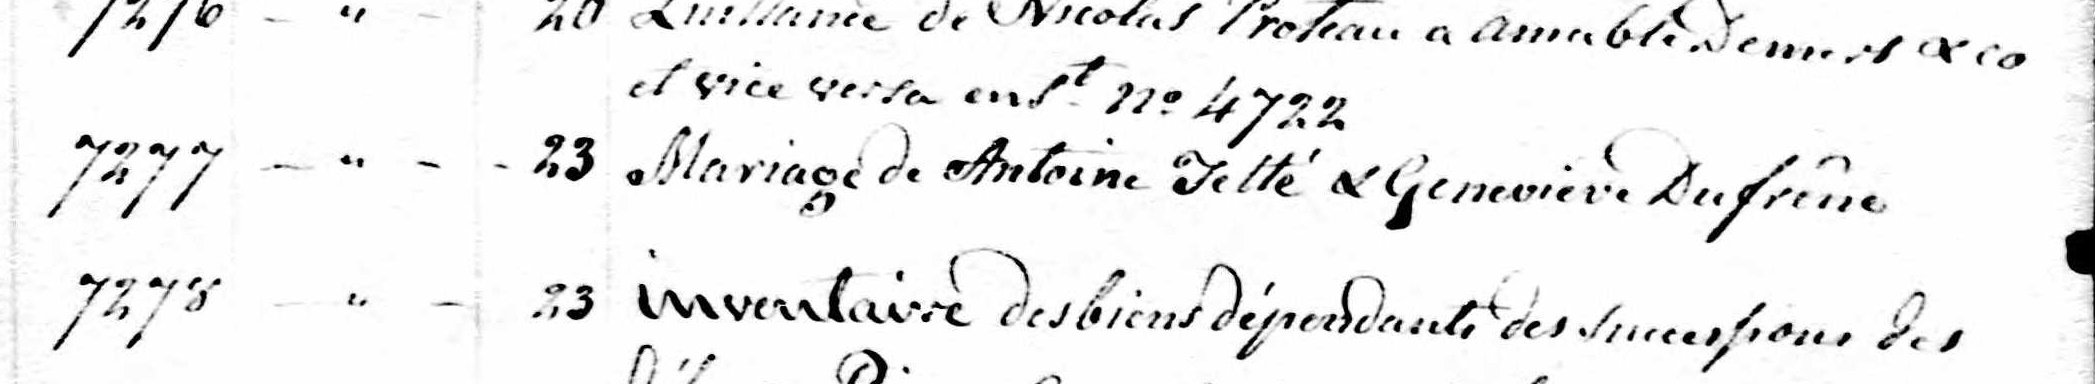 7276 - " - 20 Quittance de Nicolas Proteau a Amable Demers & co
et vice versa en st No 4722
7277 - " - - 23 Mariage de Antoine Tetté & Geneviève Dufrêne
7278 - " - 23 inventaire des biens dépendants des successions des